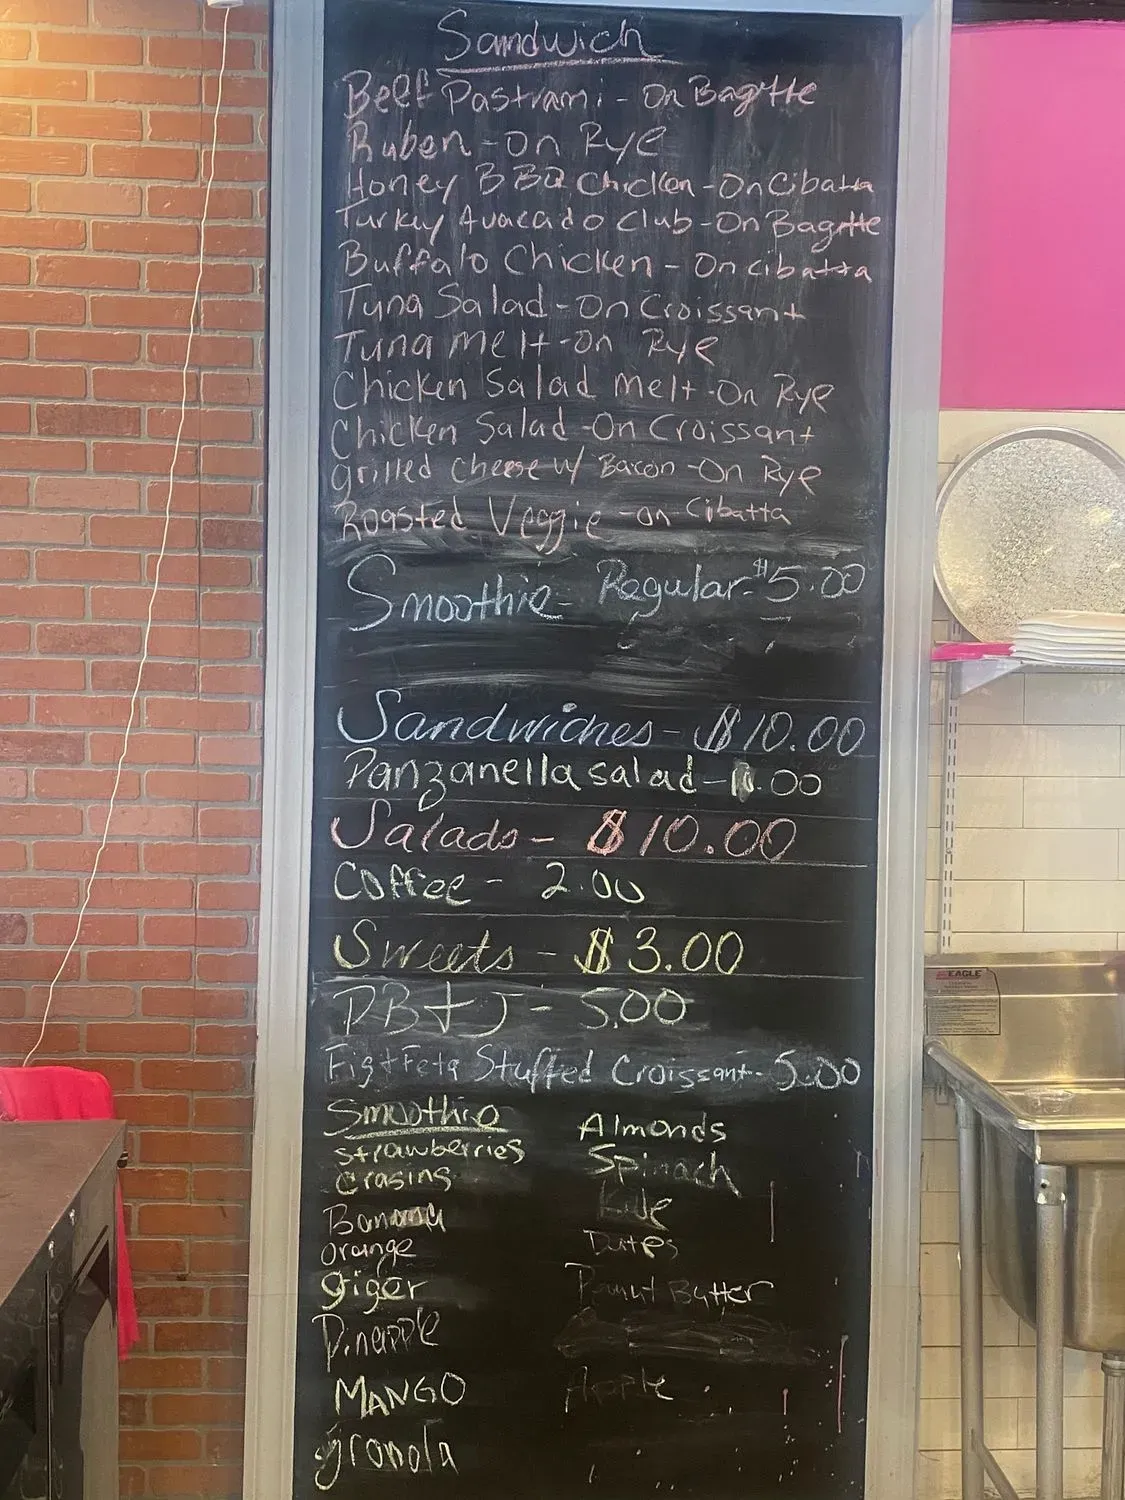 Sandwich
Beef Pastrami - On Bagtte
Ruben - on Rye
Honey BBQ Chicken - On Cibatta
Turkey Avacado Club - On Bagette
Buffalo Chicken - On cibatta
Tuna Salad - On Croissant
Tuna melt - On Rye
Chicken Salad melt - On Rye
Chicken Salad - On Croissant
grilled cheese w/ Bacon - On Rye
Roasted Veggie - on Cibatta
Smoothie - Regular - $5.00
Sandwiches - $10.00
Panzanella salad - .00
Salads - $10.00
Coffee - 2.00
Sweets - $3.00
EAGLE
PB + J - 5.00
Fig + Feta Stuffed Croissant - 5.00
Smoothie Almonds
Strawberries Spinach
Crasins
Banana Kale
Orange Dates
giger Peanut Butter
Pineapple
MANGO Apple
granola